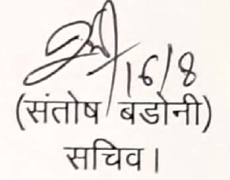 16/8
(संतोष बडोनी)
सचिव।